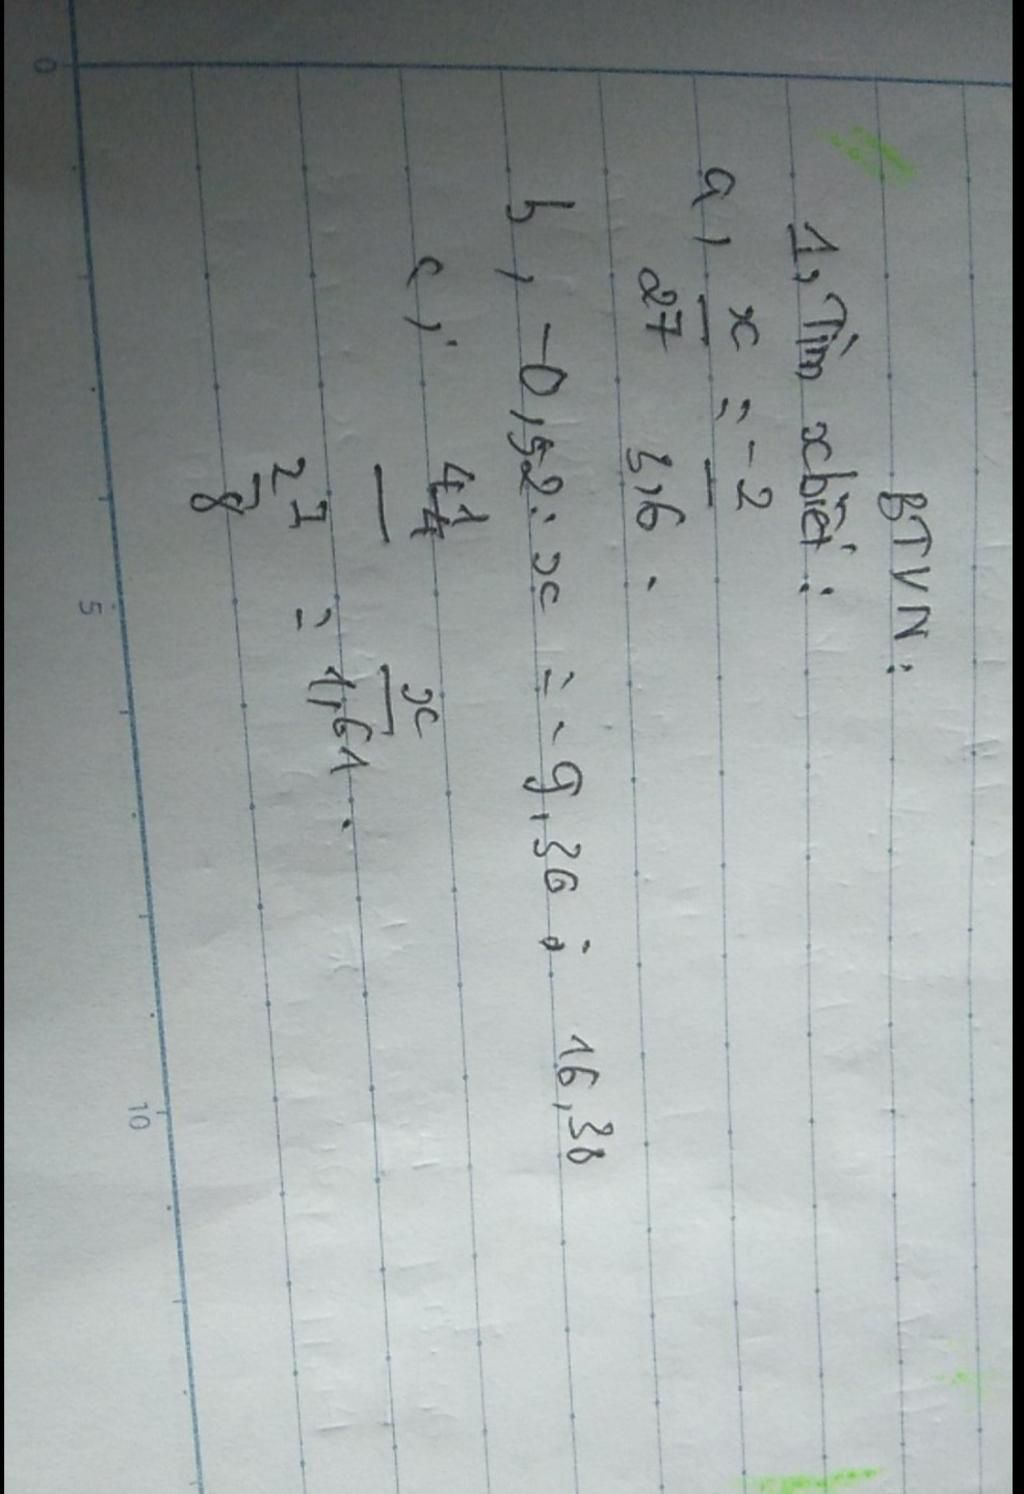 BTVN:
1, Tìm x biết:
a, x/27 = -2/3,6.
b, -0,52 : x = -9,36 : 16,38
c, 4 1/4 / 2 7/8 = x/1,61.
0 5 10